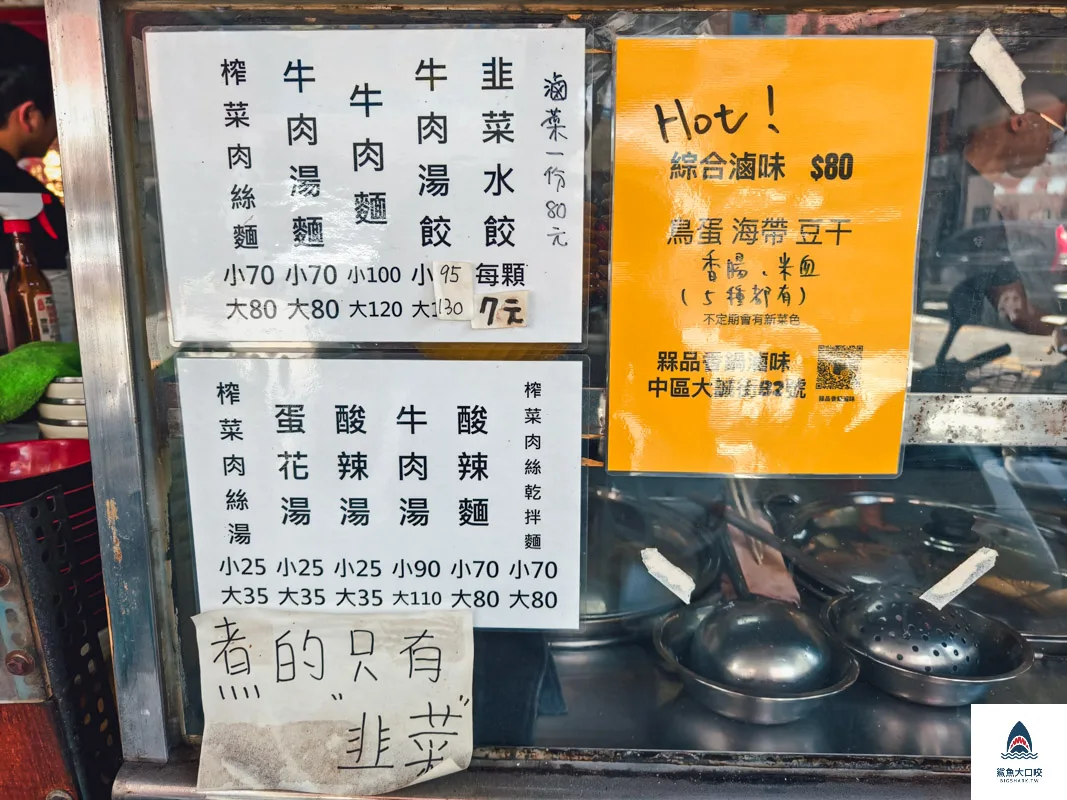 滷菜一份80元
韭菜水餃
每顆
7元
牛肉湯餃
小95
大130
牛肉麵
小100
大120
牛肉湯麵
小70
大80
榨菜肉絲麵
小70
大80
榨菜肉絲乾拌麵
小70
大80
酸辣麵
小70
大80
牛肉湯
小90
大110
酸辣湯
小25
大35
蛋花湯
小25
大35
榨菜肉絲湯
小25
大35
煮的只有
"韭菜"
Hot!
綜合滷味 $80
鳥蛋 海帶 豆干
香腸、米血
(5種都有)
不定期會有新菜色
槑品香鍋滷味
中區大誠街82號
鯊魚大口咬
BIGSHARK.TW